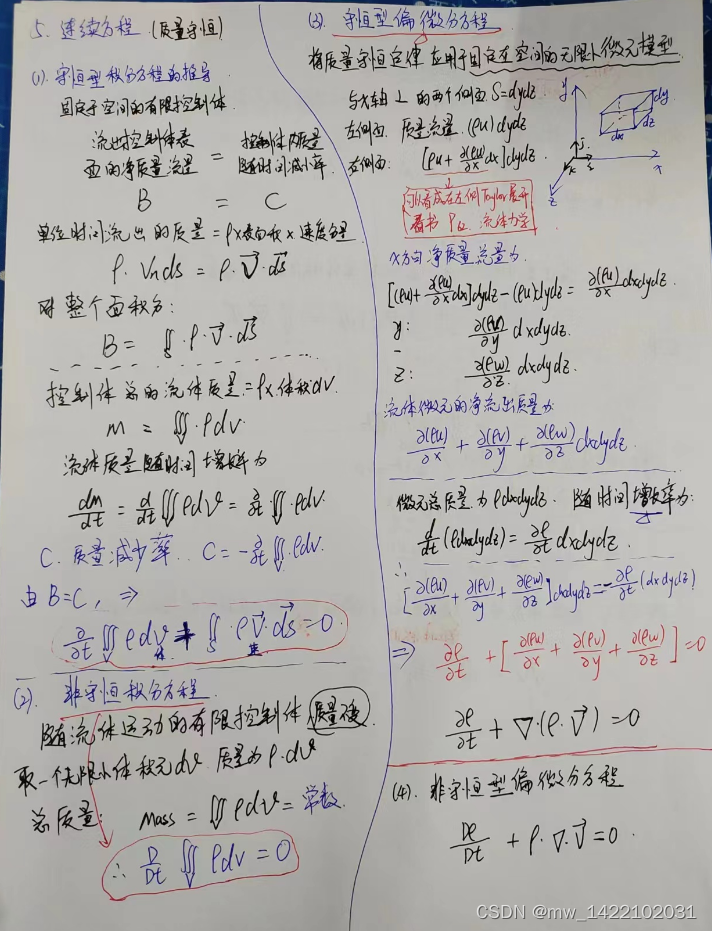 5. 连续方程 (质量守恒)
(1). 守恒型积分方程的推导
固定于空间的有限控制体
流出控制体表 = 控制体内质量
面的净质量流量 随时间减小率
B = C
单位时间流出的质量 = ρ×表面积×速度分量
ρ·Vnds = ρ·V⃗·ds⃗
对整个面积分:
B = ∬s ρ·v⃗·ds⃗
控制体 的流体质量 = ρ×体积dv.
m = ∭ρdv.
流体质量随时间增长率为
dm/dt = d/dt∭ρdv = ∂/∂t∭ρdv.
C. 质量减少率. C = -∂/∂t∭ρdv.
由B=C, ⇒
∂/∂t∭ρdv + ∬s ρV⃗·ds⃗ = 0
体 速
(2). 非守恒积分方程
随流体运动的有限控制体 质量不变.
取一个无限小体积元dv 质量为ρ·dv
总质量: mass = ∭ρdv = 常数.
∴ D/Dt∭ρdv = 0
(3). 守恒型偏微分方程
将质量守恒定律应用于固定在空间的无限小微元模型.
与x轴⊥的两个侧面 S=dydz
左侧面. 质量流量. (ρu)dydz
右侧面: [ρu + ∂(ρu)/∂x dx]dydz.
y
dy
dz
dx
j
i
k
x
z
可以看成在左侧Taylor展开
看书 流体力学
x方向净质量流量为.
[(ρu)+∂(ρu)/∂x dx]dydz-(ρu)dydz = ∂(ρu)/∂x dxdydz.
y: ∂(ρv)/∂y dxdydz.
z: ∂(ρw)/∂z dxdydz.
流体微元的净流出质量为:
∂(ρu)/∂x + ∂(ρv)/∂y + ∂(ρw)/∂z dxdydz.
微元总质量为ρdxdydz. 随时间增长率为:
d/dt(ρdxdydz) = ∂ρ/∂t dxdydz.
∴ [∂(ρu)/∂x + ∂(ρv)/∂y + ∂(ρw)/∂z]dxdydz = -∂ρ/∂t(dxdydz)
⇒ ∂ρ/∂t + [∂(ρu)/∂x + ∂(ρv)/∂y + ∂(ρw)/∂z] = 0
∂ρ/∂t + ∇·(ρ·V⃗) = 0
(4). 非守恒型偏微分方程
Dρ/Dt + ρ·∇·V⃗ = 0.
CSDN @mw_1422102031